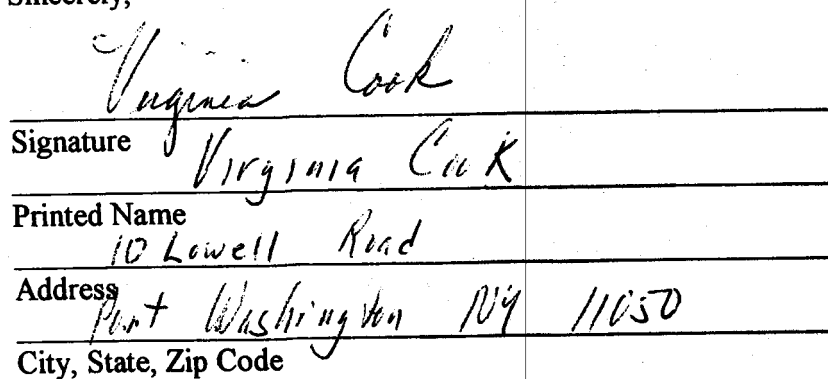 Sincerely,
Virginia Cook
Signature
Virginia Cook
Printed Name
10 Lowell Road
Address
Port Washington NY 11050
City, State, Zip Code